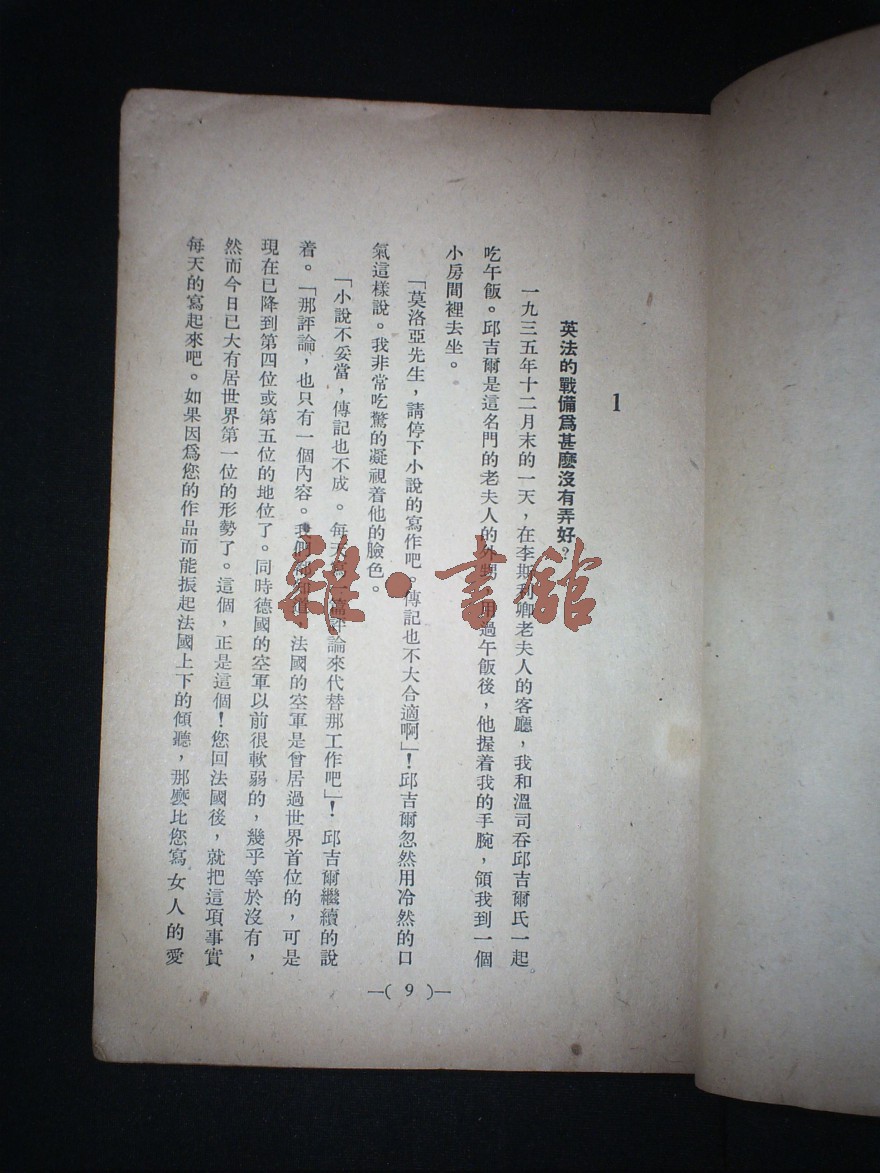 1
英法的戰備爲甚麼沒有弄好？
一九三五年十二月末的一天，在李斯利卿老夫人的客廳，我和溫司吞邱吉爾氏一起
吃午飯。邱吉爾是這名門的老夫人的外甥 用過午飯後，他握着我的手腕，領我到一個
小房間裡去坐。
「莫洛亞先生，請停下小說的寫作吧。傳記也不大合適啊」！邱吉爾忽然用冷然的口
氣這樣說。我非常吃驚的凝視着他的臉色。
「小說不妥當，傳記也不成。每天寫一篇評論來代替那工作吧」！邱吉爾繼續的說
着。「那評論，也只有一個內容。我們都知道，法國的空軍是曾居過世界首位的，可是
現在已降到第四位或第五位的地位了。同時德國的空軍以前很軟弱的，幾乎等於沒有，
然而今日已大有居世界第一位的形勢了。這個，正是這個！您回法國後，就把這項事實
每天的寫起來吧。如果因爲您的作品而能振起法國上下的傾聽，那麼比您寫女人的愛
—( 9 )—
雜·書館